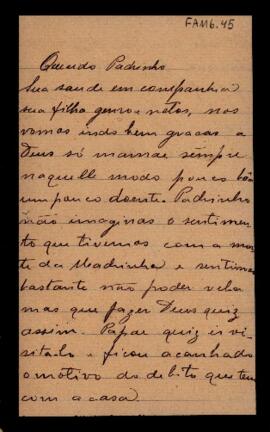 FAM6.45
Querido Padrinho
Sua saude em companhia
sua filha genro e netos, nos
vamos indo bem graças a
Deus só mamãe sempre
naquelle modo pouco bôa
um pouco doente. Padrinho
não imaginas o sentimen
to que tivemos com a mor
te da Madrinha e sentimos
bastante não poder vela
mas que fazer Deus quiz
assim. Papae quiz ir vi
sitalo e ficou acanhado
o motivo do debito que tem
com a casa